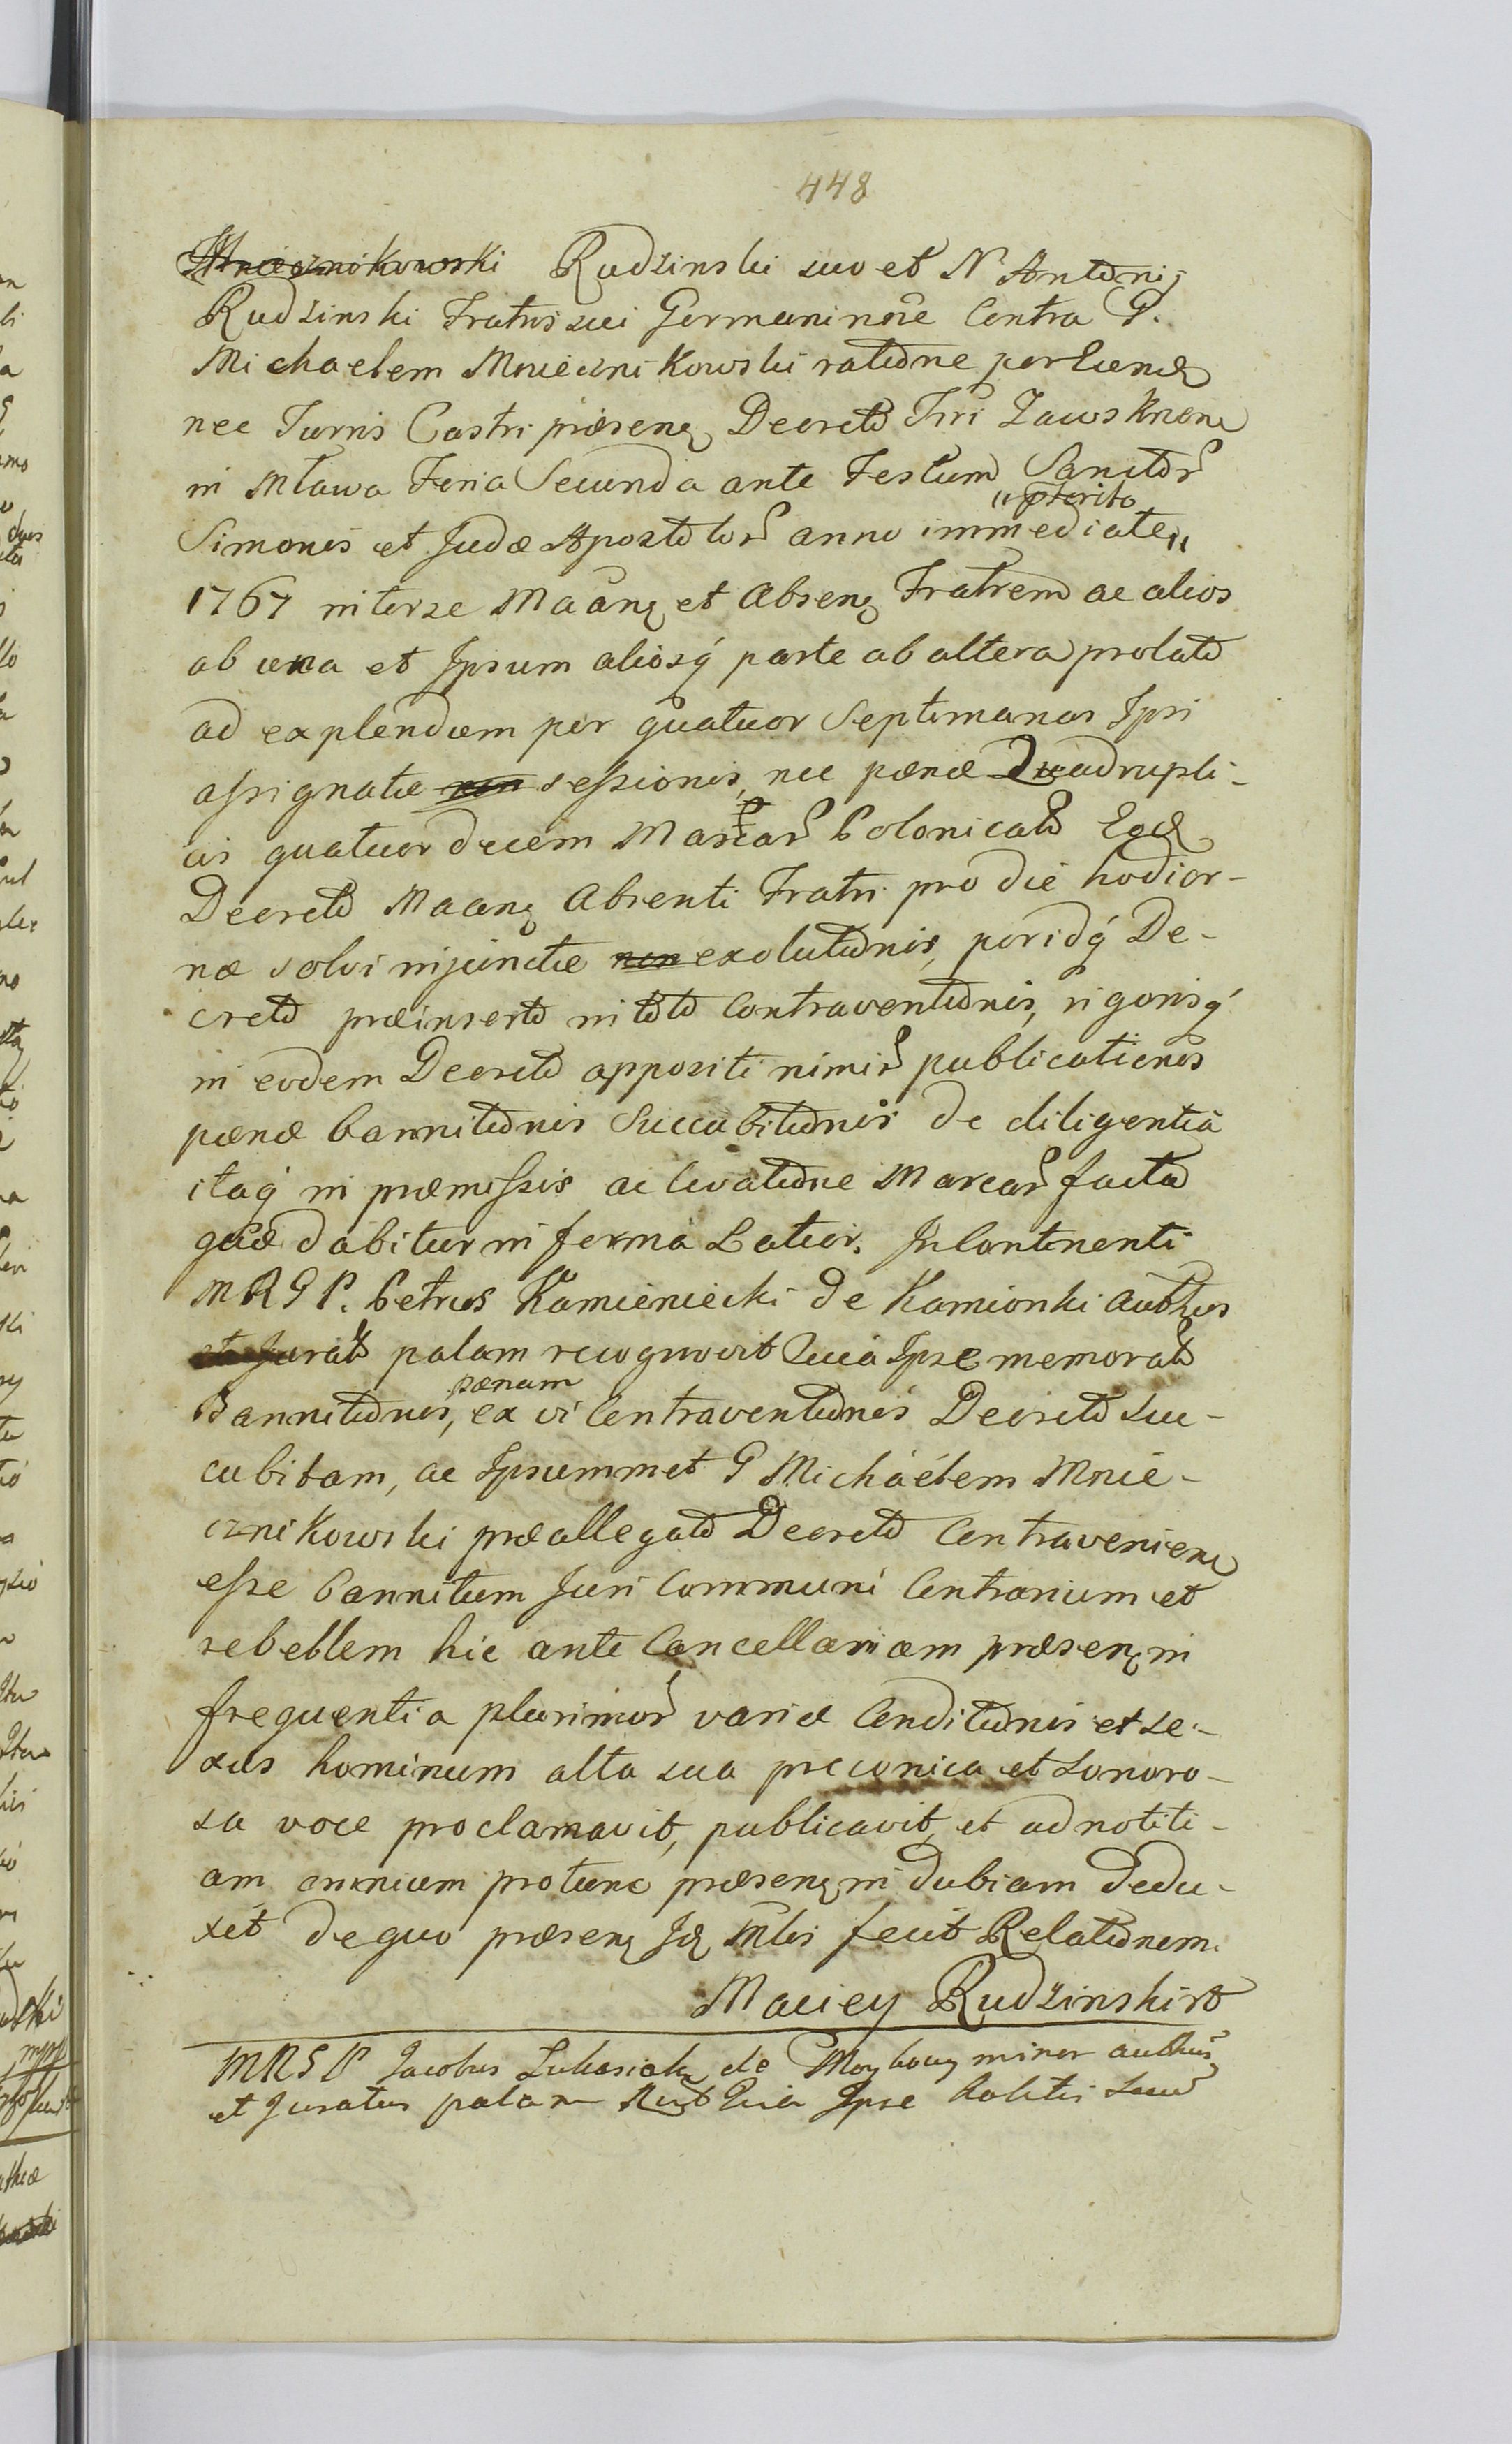 448
Mniecznikowski Rudzinski suo et N Antonij
Rudzinski Fratris sui Germani noe Contra G.
Michaelem Mnieczni Kowski ratione
nec Turris Castri præsenq Decreto Tri Zawsknen
in Mlawa Feria Secunda ante Festum Sanctor
"pterito
Simonis et Judæ Apostolor anno immediate"
1767 interse Maanq et Absenq Fratrem ac alios
ab una et Ipsum aliosq parte ab altera prolato
ad explendum per quatuor Septimanas Ipsi
assignatæ non sessionis, nec pænæ Quadrupli-
cis quatuor decem Marcar Polonical Eod
Decreto Maanq Absenti Fratri pro die hodier-
næ solvi injunctæ non exolutionis, peridq De-
creto præinserto in toto Contraventionis, rigorisq
in eodem Decreto appositi nimir publicationis
pænæ bannitionis Succubitionis de diligentia
itaq in præmissis ac levatione Marcar facta
quæ dabitur in forma Latior. In Continenti
MRGP. Petrus Kamieniecki de Kamionki Authus
et Jurats palam recognovit Quia Ipse memorato
pænam
Bannitionis, ex vi Contraventionis Decreto suc-
cubitam, ac Ipsummet G Michaelem Mnie-
czni Kowski præallegato Decreto Contravenien
esse bannitum Juri Communi Contrarium et
rebellem hic ante Cancellariam præsenq in
frequentia plurimor variæ Conditionis et se-
xus hominum alta sua preconica et sonoro-
sa voce proclamavit, publicavit, et ad notiti-
am omnium protunc præsenq in dubiam dedu-
xit de quo præsenq Id Mlis fecit Relationem.
Maciey Rudzinski
MRSP Jacobus Lukasiak de miner authus
et Juratus palam Quia Ipse